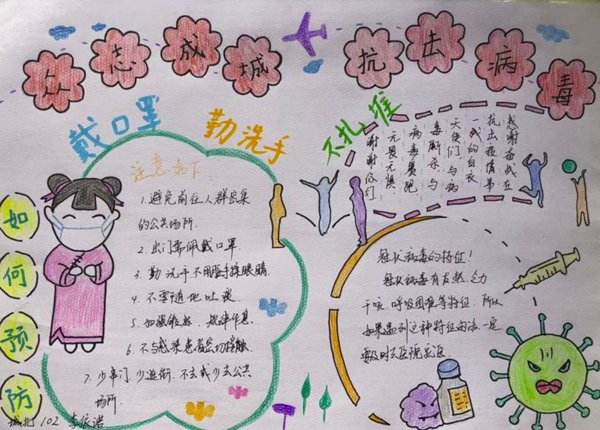 众志成城 抗击病毒
戴口罩
勤洗手
不扎堆
如何预防
注意如下：
1.避免前往人群密集
的公共场所.
2.出门需佩戴口罩.
3.勤洗手不用脏手揉眼睛.
4.不要随地吐痰
5.加强锻炼，规律作息.
6.不与感染患者密切接触
7.少串门，少逛街，不去或少去公共
场所.
感谢奋战在
抗击疫情第
一线的白衣
天使们，与病
毒斯杀，与
病毒赛跑
无畏无惧
谢谢你们
冠状病毒的特征！
冠状病毒有发热、乏力
干咳、呼吸困难等特征，所以
如果遇到这种特征的话一定
要及时去医院就医
102 李依诺